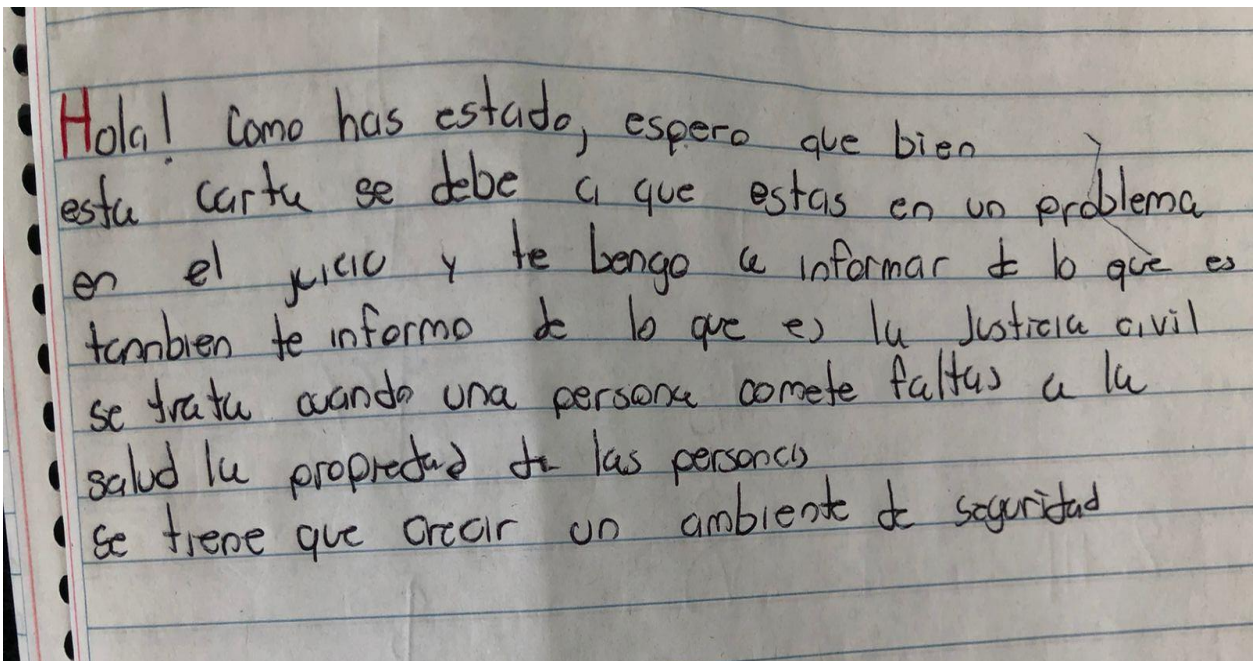 Hola! Como has estado, espero que bien
esta carta se debe a que estas en un problema
en el juicio y te bengo a informar de lo que es
tambien te informo de lo que es la Justicia civil
se trata cuando una persona comete faltas a la
salud la propredad de las personas
se tiene que crear un ambiente de seguridad